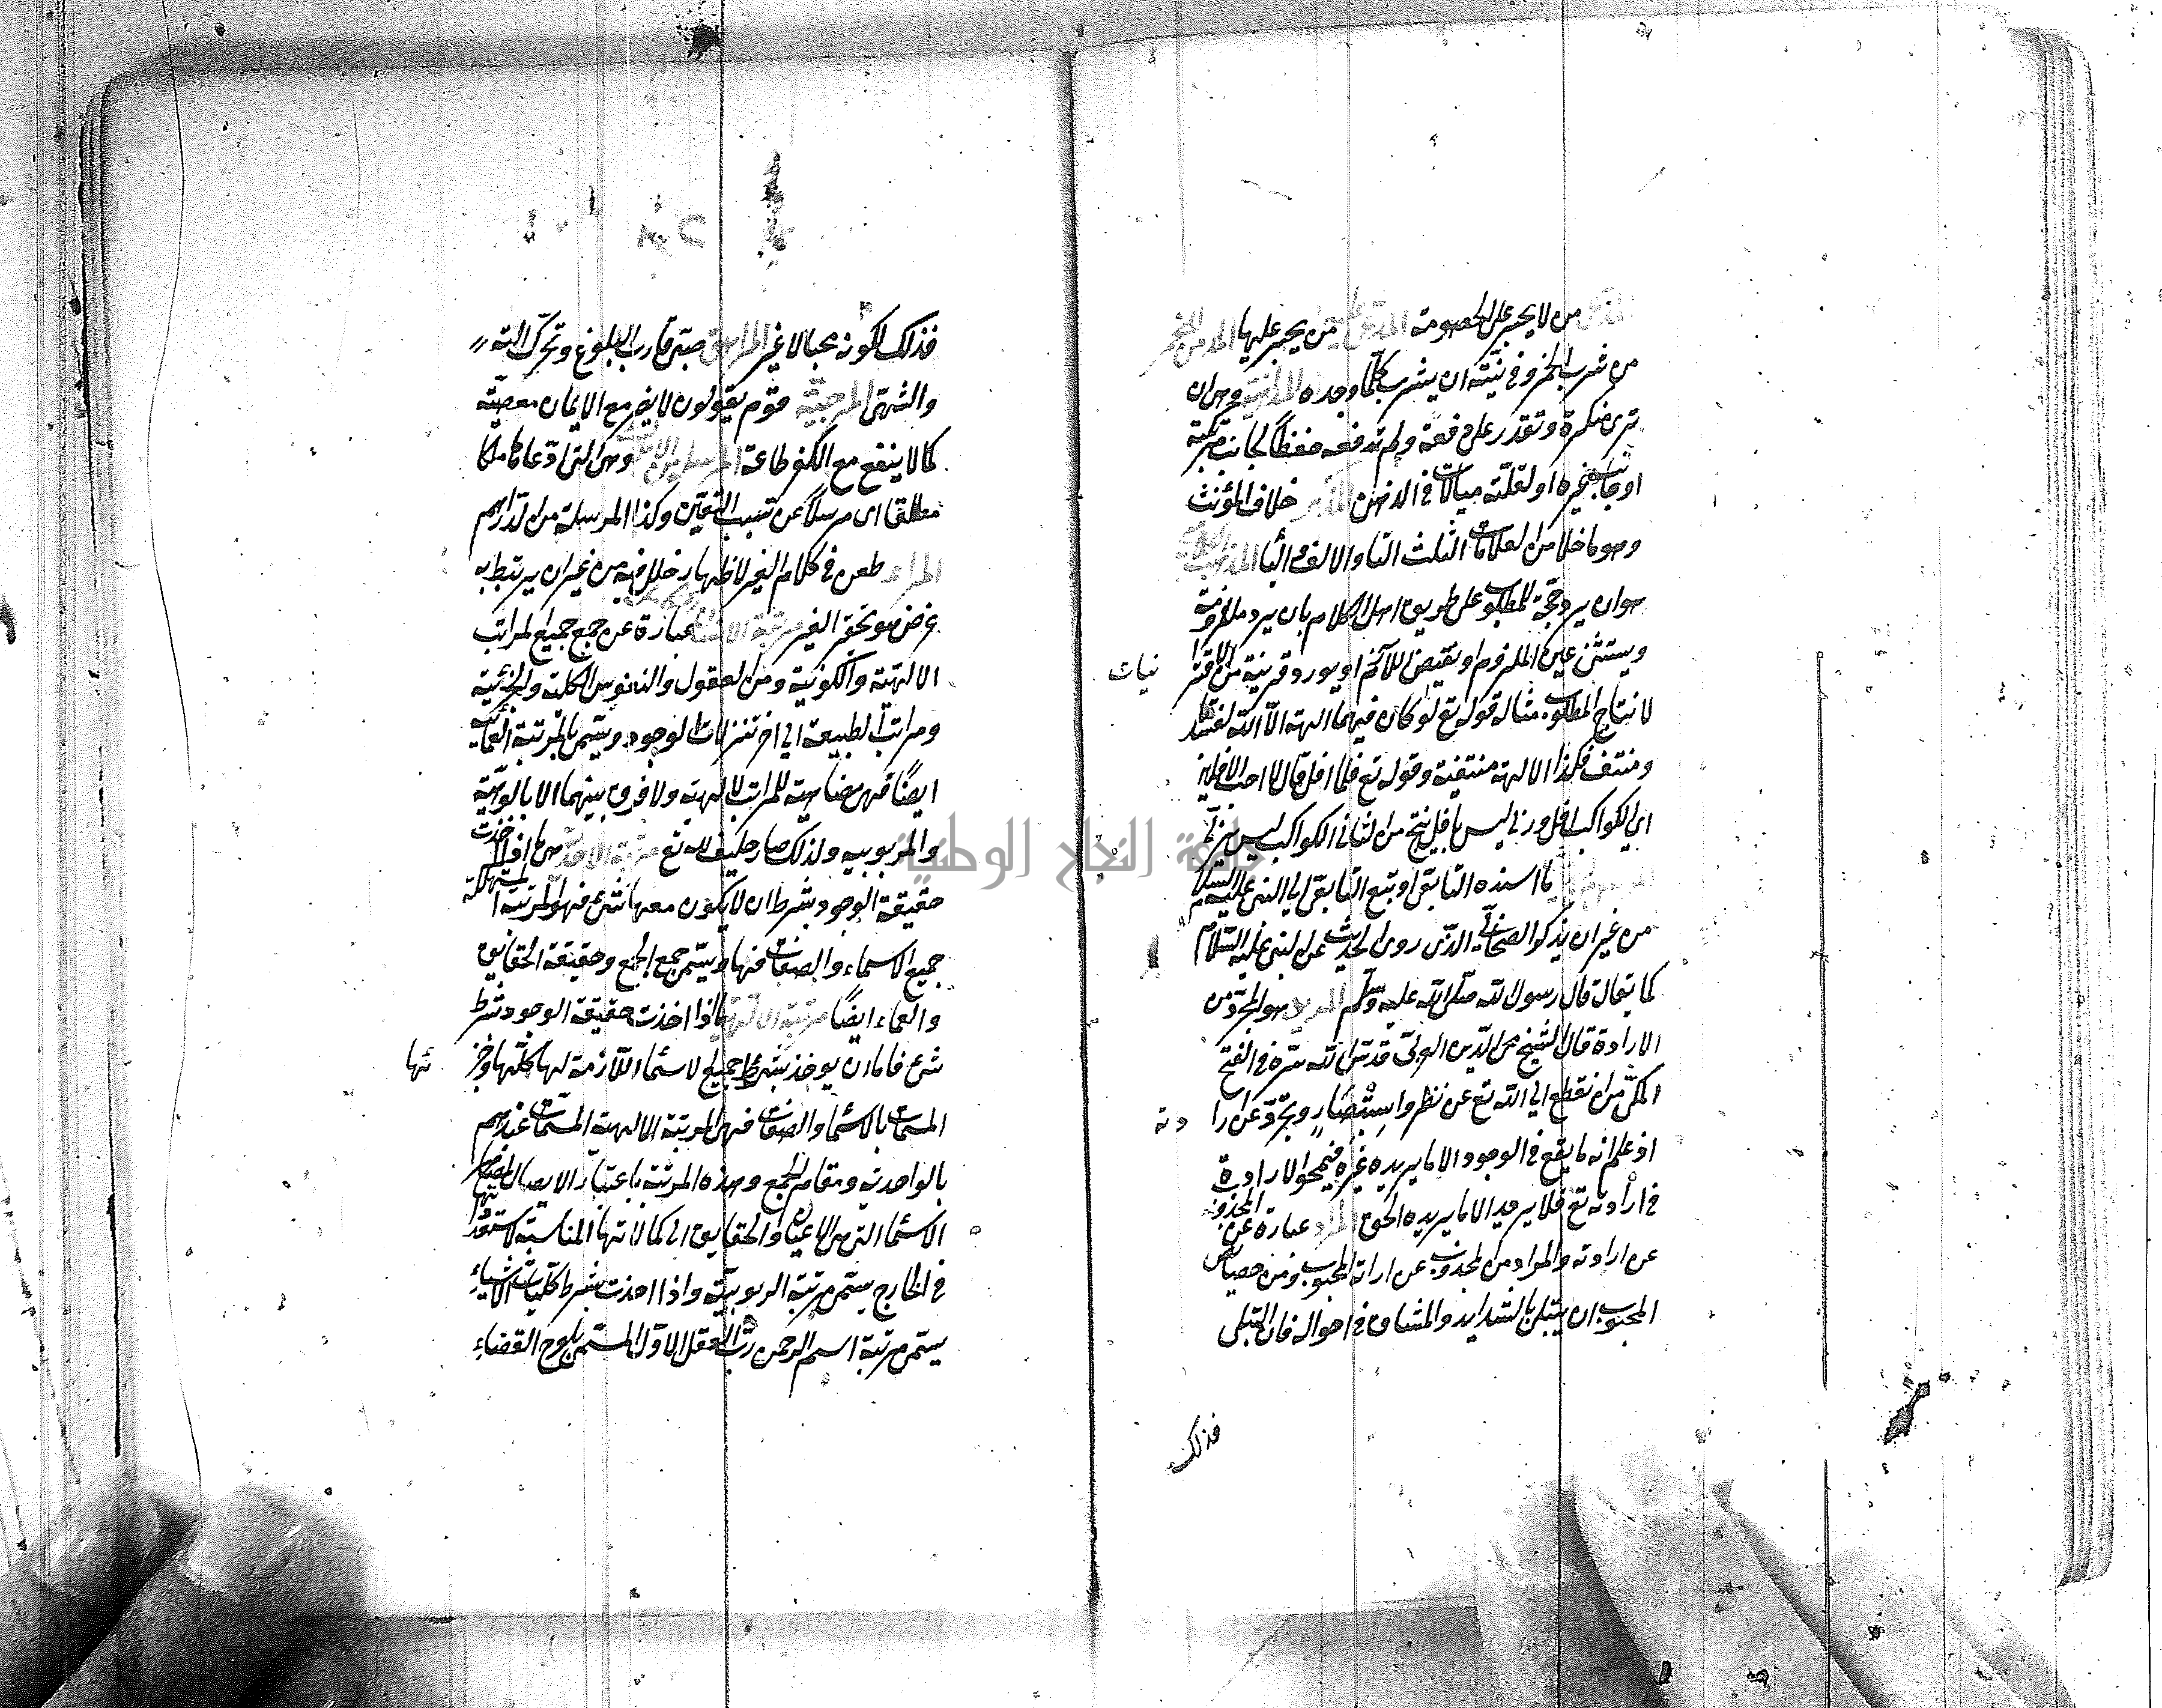 المدعي من لا يجبر على الخصومة المدعى عليه من يجبر عليها المدمن للخمر
من شرب الخمر وفي نيته ان يشرب كلما وجده المداهنة هي ان
ترى منكرا وتقدر على دفعه ولم تدفعه حفظا لجانب مرتكبه
او جانب غيره او لقلة مبالات في الدين المذكر خلاف المؤنث
وهو ما خلا من العلامات الثلث التا والالف واليا المذهب الكلامي
هو ان يرد حجة للمطلوب على طريق اهل الكلام بان يرد ملازمة
ويستثنى عين الملزوم او نقيض اللازم او يورد قرينة من الاقترا نيات
لانتاج المطلوب مثاله قوله تع لو كان فيهما الهة الا الله لفسدتا
ومنتف فكذا الالهة منتفية وقوله تع فلما افل قال لا احب الافلين
اي الكواكب افل وربي ليس بافل ينتج من الثاني الكواكب ليس بربي
ما اسنده التابعي او تبع التابعي الى النبي عليه السلام
من غير ان يذكر الصحابي الذي روى الحديث عن النبي عليه السلام
كما يقال قال رسول الله صلى الله عليه وسلم المريد هو المجرد من
الارادة قال الشيخ محي الدين العربي قدس الله سره في الفتح
المكي من انقطع الى الله تع عن نظر واستبصار وتجرد عن ارا دته
اذ علم انه ما يقع في الوجود الا ما يريده غيره فيمحو الارادة
في ارادته تع فلا يريد الا ما يريده الحق المراد عبارة عن المجذوب
عن ارادته والمراد من المجذوب عن ارادته المحبوب ومن خصايص
المحبوب ان يبتلى بالشدايد والمشاق في احواله فان ابتلى
فذلك
فذلك لكونه محبا لا غير المراهق صبي قارب البلوغ وتحرك الته
واشتهى المرجئة قوم يقولون لا يضر مع الايمان معصية
كما لا ينفع مع الكفر طاعة المرسلة من الاملاك وهي التي ادعاها ملكا
مطلقا اي مرسلا عن سبب التعين وكذا المرسلة من الدراهم
المراء طعن في كلام الغير لاظهار خلل فيه من غير ان يرتبط به
غرض سوى تحقير الغير مرتبة الانسان عبارة عن جمع جميع المراتب
الالهية والكونية ومن العقول والنفوس الكلية والجزئية
ومراتب الطبيعة الى اخر تنزلات الوجود ويسمى بالمرتبة العمائية
ايضا فهي مضاهية للمراتب الالهية ولا فرق بينهما الا بالربوبية
والمربوبيه ولذلك صار خليفة لله تع مرتبة الاحدية هي ما اذا اخذت
حقيقة الوجود بشرط ان لا يكون معها شئ فهو المرتبة المستهلكة
جميع الاسماء والصفات فيها ويسمى جمع الجمع وحقيقة الحقايق
والعماء ايضا مرتبة الالهية ما اذا اخذت حقيقة الوجود بشرط
شئ فاما ان يوخذ بشرط جميع الاسما اللازمة لها كليها وجز ئها
المسمات بالاسما والصفات فهي المرتبة الالهية المسمات عندهم
بالواحدية ومقام الجمع وهذه المرتبة باعتبار الايصال لمظاهر
الاسما التي هي الاعيان والحقايق الى كمالاتها المناسبة لاستعداداتها
في الخارج يسمى مرتبة الربوبية واذا اخذت بشرط كليات الاشياء
يسمى مرتبة اسم الرحمن رب العقل الاول المسمى بلوح القضاء